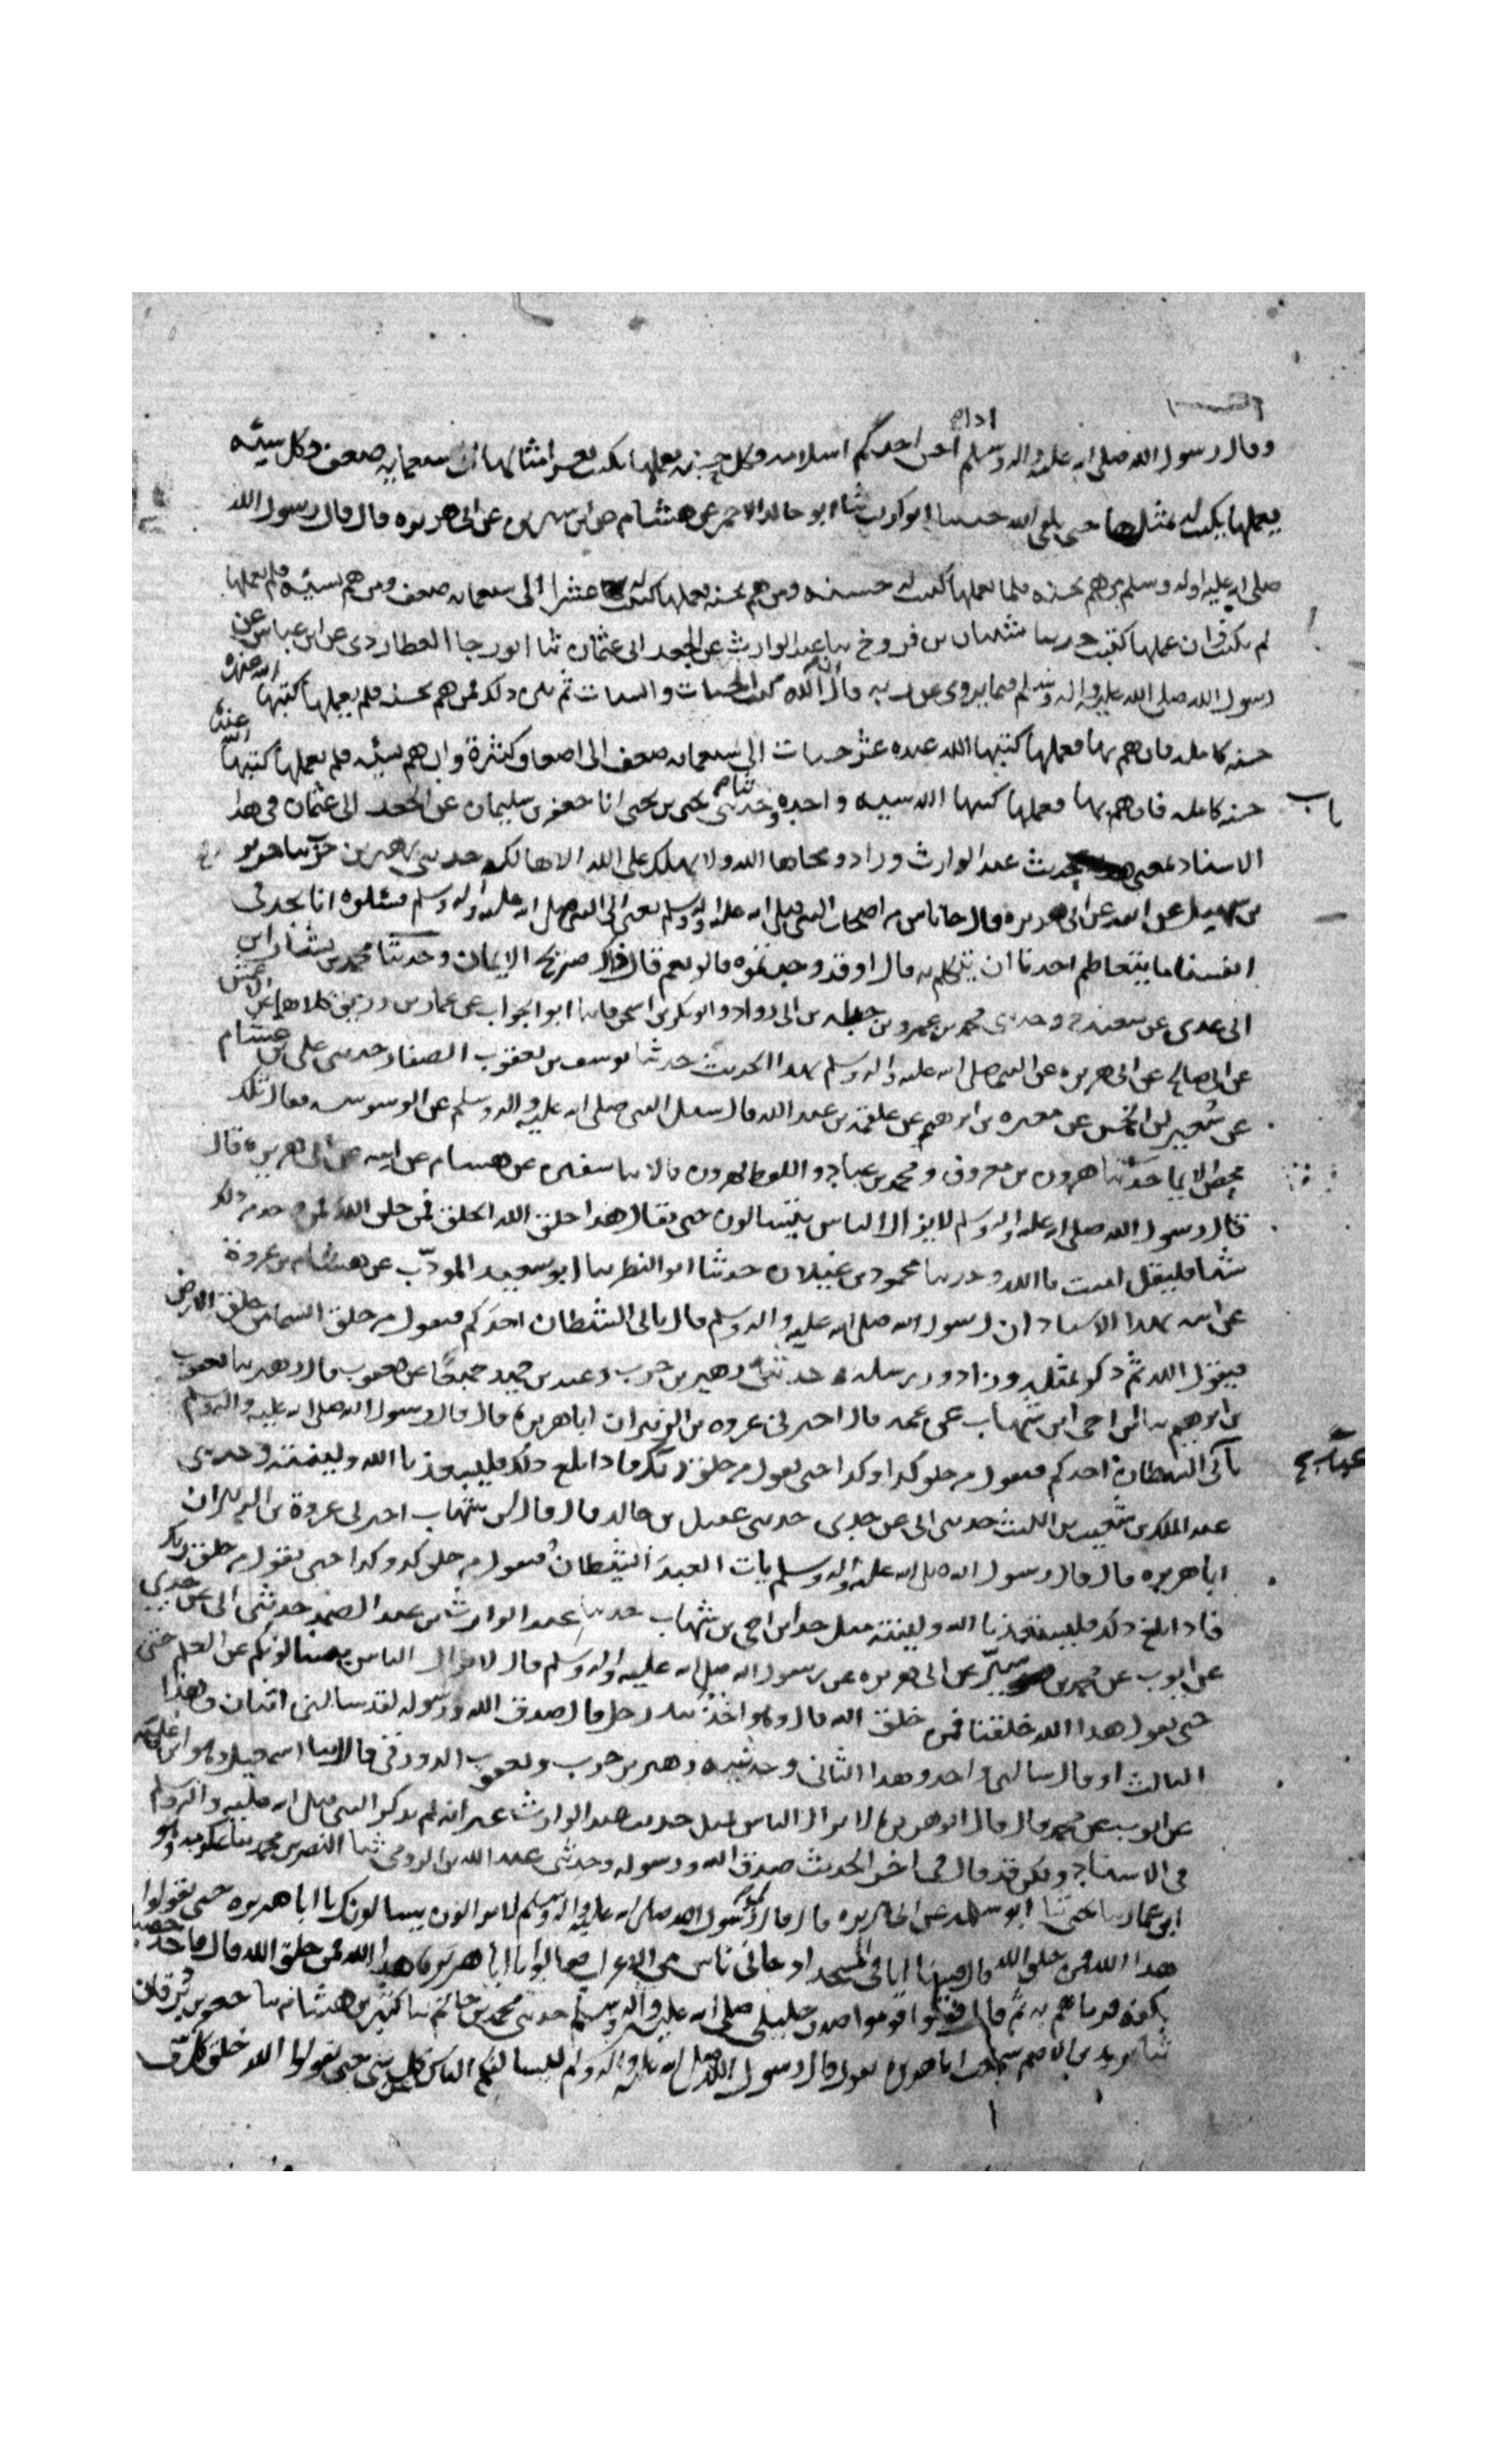 اذا
وقال رسول الله صلى الله عليه واله وسلم احسن احدكم اسلامه فكل حسنة يعملها تكتب بعشر امثالها الى سبعماية ضعف وكل سيئة
يعملها تكتب له بمثلها حتى يلقى الله حدثنا ابو كريب ثنا ابو خالد الاحمر عن هشام عن ابن سيرين عن ابى هريرة قال قال رسول الله
صلى الله عليه واله وسلم من هم بحسنة فلم يعملها كتبت له حسنة ومن هم بحسنة فعملها كتبت له عشرا الى سبعماية ضعف ومن هم بسيئة فلم يعملها
لم تكتب وان عملها كتبت حدثنا شيبان بن فروخ ثنا عبد الوارث عن الجعد ابى عثمان ثنا ابو رجا العطاردى عن ابن عباس عن
رسول الله صلى الله عليه واله وسلم فيما يروى عن ربه قال ان الله كتب الحسنات والسيات ثم بين ذلك فمن هم بحسنة فلم يعملها كتبها الله عنده
حسنة كاملة فان هم بها فعملها كتبها الله عنده عشر حسنات الى سبعماية ضعف الى اضعاف كثيرة وان هم بسيئة فلم يعملها كتبها الله عنده
باب
حسنة كاملة فان هم بها فعملها كتبها الله سيئة واحدة وحدثنى يحيى بن يحيى انا جعفر بن سليمان عن الجعد ابى عثمان فى هذا
الاسناد بمعنى حديث عبد الوارث وزاد ومحاها الله ولا يهلك على الله الا هالك حدثنى زهير بن حرب ثنا جرير
عن سهيل عن ابيه عن ابى هريرة قال جا ناس من اصحاب النبى صلى الله عليه واله وسلم الى النبى صلى الله عليه واله وسلم فسئلوه انا نجد فى
انفسنا ما يتعاظم احدنا ان يتكلم به قال اوقد وجدتموه قالو نعم قال ذاك صريح الايمان وحدثنا محمد بن بشار ثنا ابن
ابى عدى عن شعبة ح وحدثنى محمد بن عمرو بن جبلة بن ابى رواد وابو بكر بن اسحق قالا ثنا ابو الجواب عن عمار بن رزيق كلاهما عن الاعمش
عن ابى صالح عن ابى هريرة عن النبى صلى الله عليه واله وسلم بهذا الحديث حدثنا يوسف بن يعقوب الصفار حدثنى على بن عثام
عن سعير بن الخمس عن مغيرة عن ابرهيم عن علقمة عن عبد الله قال سئل النبى صلى الله عليه واله وسلم عن الوسوسة فقال تلك
محض الايمان حدثنا هرون بن معروف ومحمد بن عباد واللفظ لهرون قالا ثنا سفين عن هشام عن ابيه عن ابى هريرة قال
قال رسول الله صلى الله عليه واله وسلم لا يزال الناس يتسالون حتى يقال هذا خلق الله الخلق فمن خلق الله فمن وجد من ذلك
شيا فليقل امنت بالله وحدثنا محمود بن غيلان حدثنا ابو النضر ثنا ابو سعيد المودب عن هشام بن عروة
عن ابيه بهذا الاسناد ان رسول الله صلى الله عليه واله وسلم قال ياتى الشيطان احدكم فيقول من خلق السما من خلق الارض
فيقول الله ثم ذكر بمثله وزاد ورسله حدثنى زهير بن حرب وعبد بن حميد جميعا عن يعقوب قال زهير ثنا يعقوب
بن ابرهيم ثنا ابن اخى ابن شهاب عن عمه قال اخبرنى عروة بن الزبير ان ابا هريرة قال قال رسول الله صلى الله عليه واله وسلم
ياتى الشيطان احدكم فيقول من خلق كذا وكذا حتى يقول من خلق ربك فاذا بلغ ذلك فليستعذ بالله ولينته وحدثنى
عبد الملك بن شعيب بن الليث حدثنى ابى عن جدى حدثنى عقيل بن خالد قال قال ابن شهاب اخبرنى عروة بن الزبير ان
ابا هريرة قال قال رسول الله صلى الله عليه واله وسلم يات العبد الشيطان فيقول من خلق كذا وكذا حتى يقول من خلق ربك
فاذا بلغ ذلك فليستعذ بالله ولينته مثل حديث ابن اخى بن شهاب حدثنا عبد الوارث بن عبد الصمد حدثنى ابى عن جدى
عن ايوب عن محمد بن سيرين عن ابى هريرة عن رسول الله صلى الله عليه واله وسلم قال لا يزال الناس يسالونكم عن العلم حتى
حتى يقول هذا الله خلقنا فمن خلق الله قال وهو اخذ بيد رجل قال صدق الله ورسوله لقد سالنى اثنان وهذا
الثالث او قال سالنى واحد وهذا الثانى وحدثنيه زهير بن حرب ويعقوب الدورقى قالا ثنا اسمعيل وهو ابن علية
عن ايوب عن محمد قال قال ابو هريرة لا يزال الناس بمثل حديث عبد الوارث غير انه لم يذكر النبى صلى الله عليه واله وسلم
فى الاسناد ولكن قد قال فى اخر الحديث صدق الله ورسوله وحدثنى عبد الله بن الرومى ثنا النضر بن محمد ثنا عكرمة وهو
ابن عمار ثنا يحيى ثنا ابو سلمة عن ابى هريرة قال قال لى رسول الله صلى الله عليه واله وسلم لا يزالون يسالونك يا ابا هريرة حتى يقولوا
هذا الله فمن خلق الله قال فبينا انا فى المسجد اذ جانى ناس من الاعراب فقالوا يا ابا هريرة هذا الله فمن خلق الله قال فاخذ حصا
بكفه فرماهم به ثم قال قوموا قوموا صدق خليلى صلى الله عليه واله وسلم حدثنى محمد بن حاتم ثنا كثير بن هشام ثنا جعفر بن برقان
ثنا يزيد بن الاصم سمعت ابا هريرة يقول قال رسول الله صلى الله عليه واله وسلم ليسالنكم الناس عن كل شى حتى يقولوا الله خلق كل شى ف